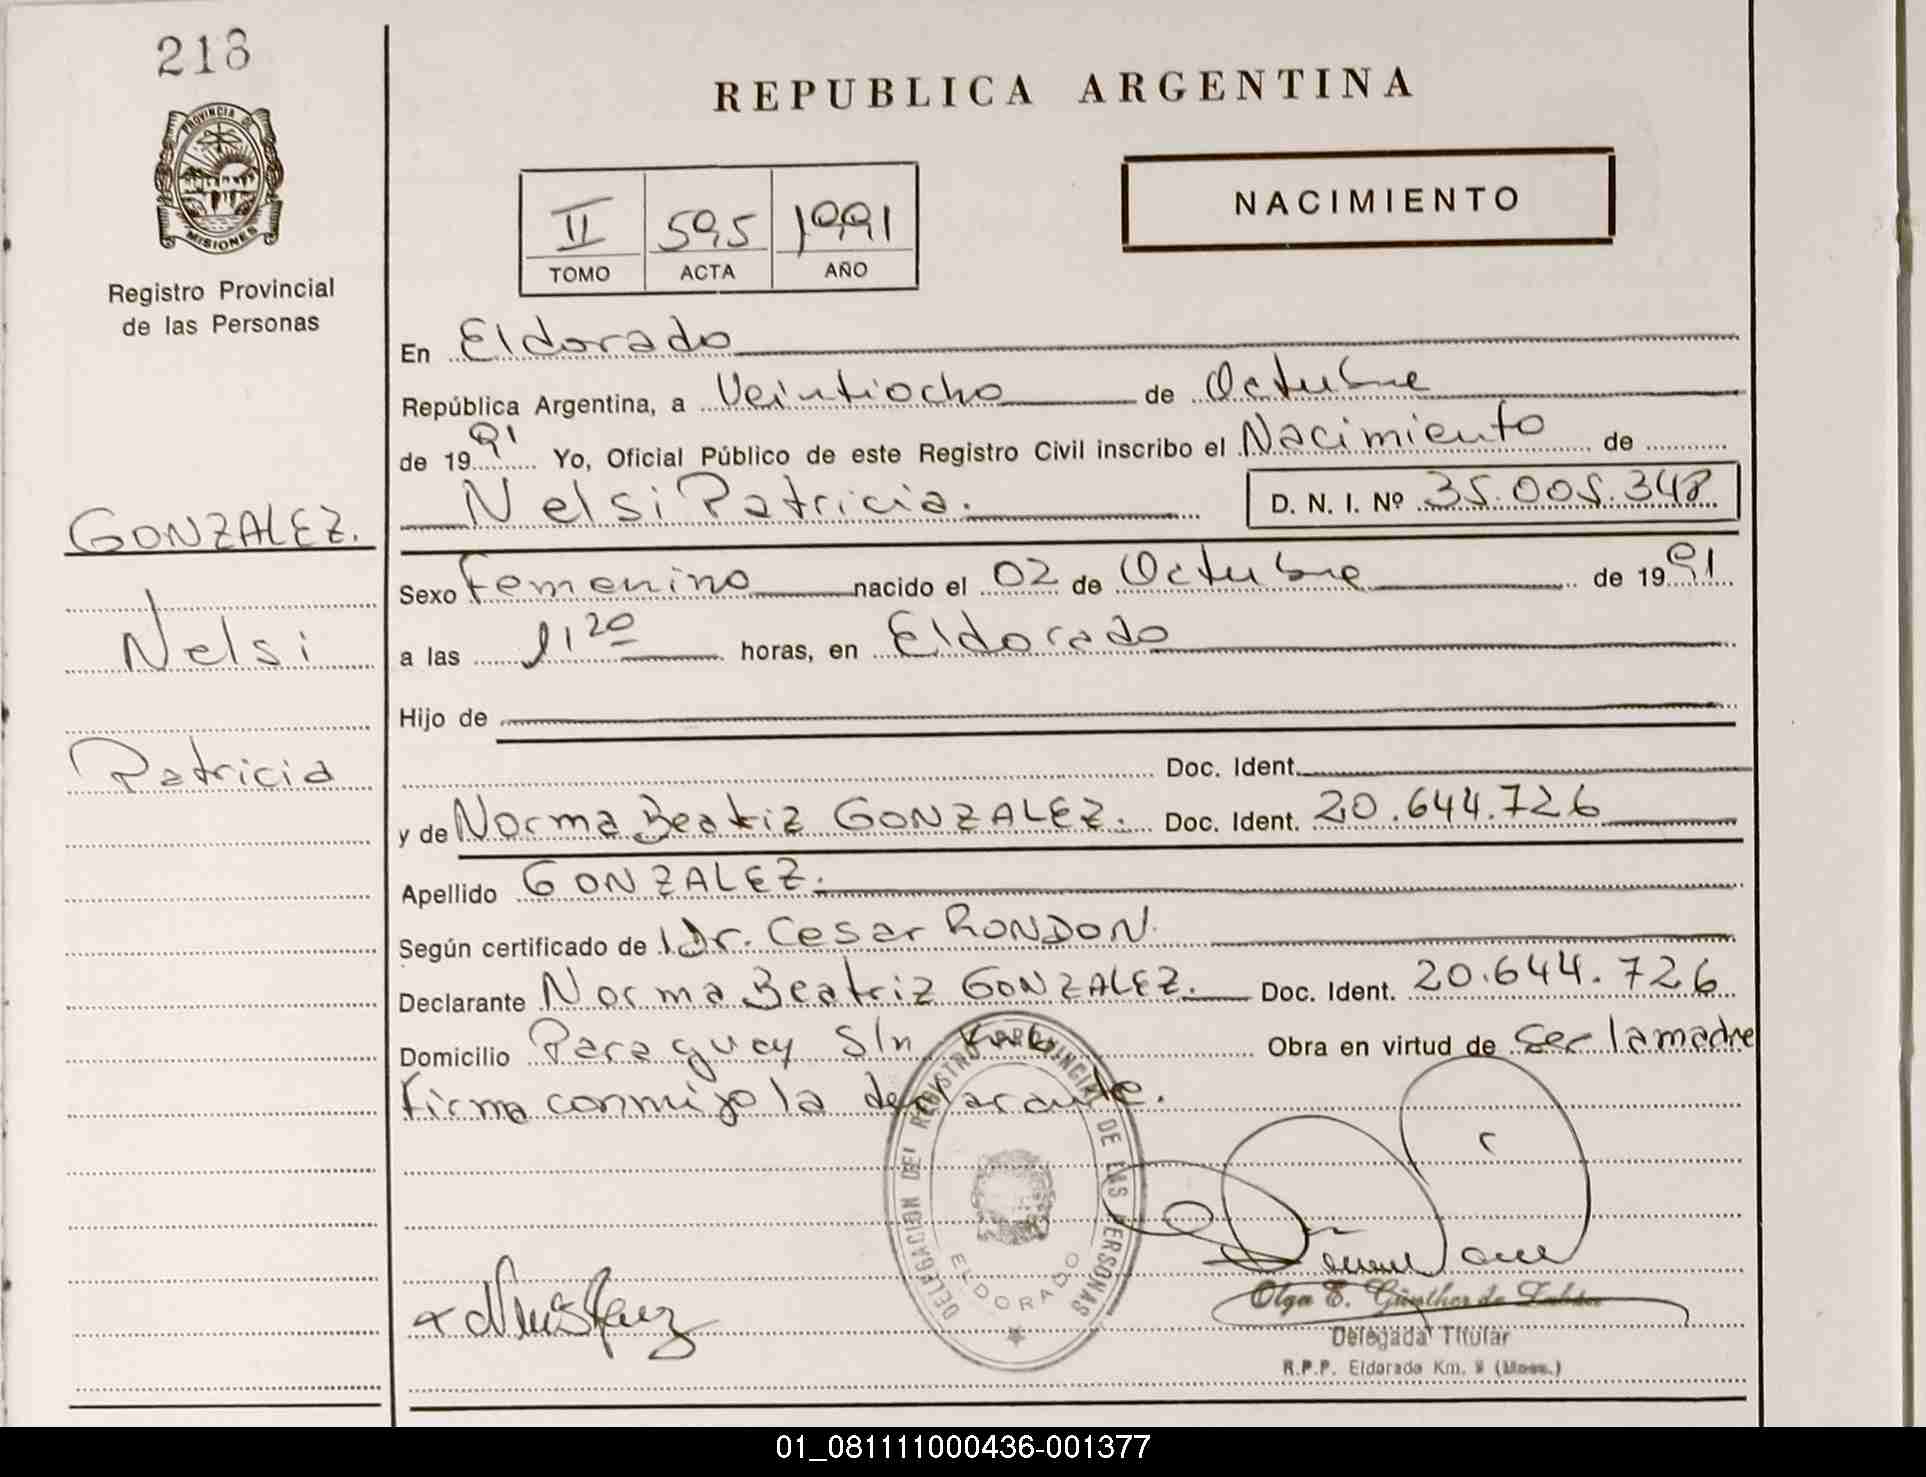 218
PROVINCIA DE
MISIONES
Registro Provincial
de las Personas
GONZALEZ.
Nelsi
Patricia
REPUBLICA ARGENTINA
NACIMIENTO
II 595 1991
TOMO ACTA AÑO
En Eldorado
República Argentina, a Veintiocho de Octubre
de 1991 Yo, Oficial Público de este Registro Civil inscribo el Nacimiento de
Nelsi Patricia. D. N. I. Nº 35.005.348
Sexo Femenino nacido el 02 de Octubre de 1991
a las 11 20 horas, en Eldorado
Hijo de
Doc. Ident.
y de Norma Beatriz GONZALEZ. Doc. Ident. 20.644.726
Apellido GONZALEZ.
Según certificado de Dr. Cesar RONDON.
Declarante Norma Beatriz GONZALEZ. Doc. Ident. 20.644.726
Domicilio Paraguay S/n Km6 Obra en virtud de Ser la madre
Firma conmigo la declarante.
DELEGACION DEL REGISTRO PROVINCIAL DE LAS PERSONAS
ELDORADO
Olga E. Günther de
Delegada Titular
R.P.P. Eldorado Km. 9 (Mnes.)
01_081111000436-001377